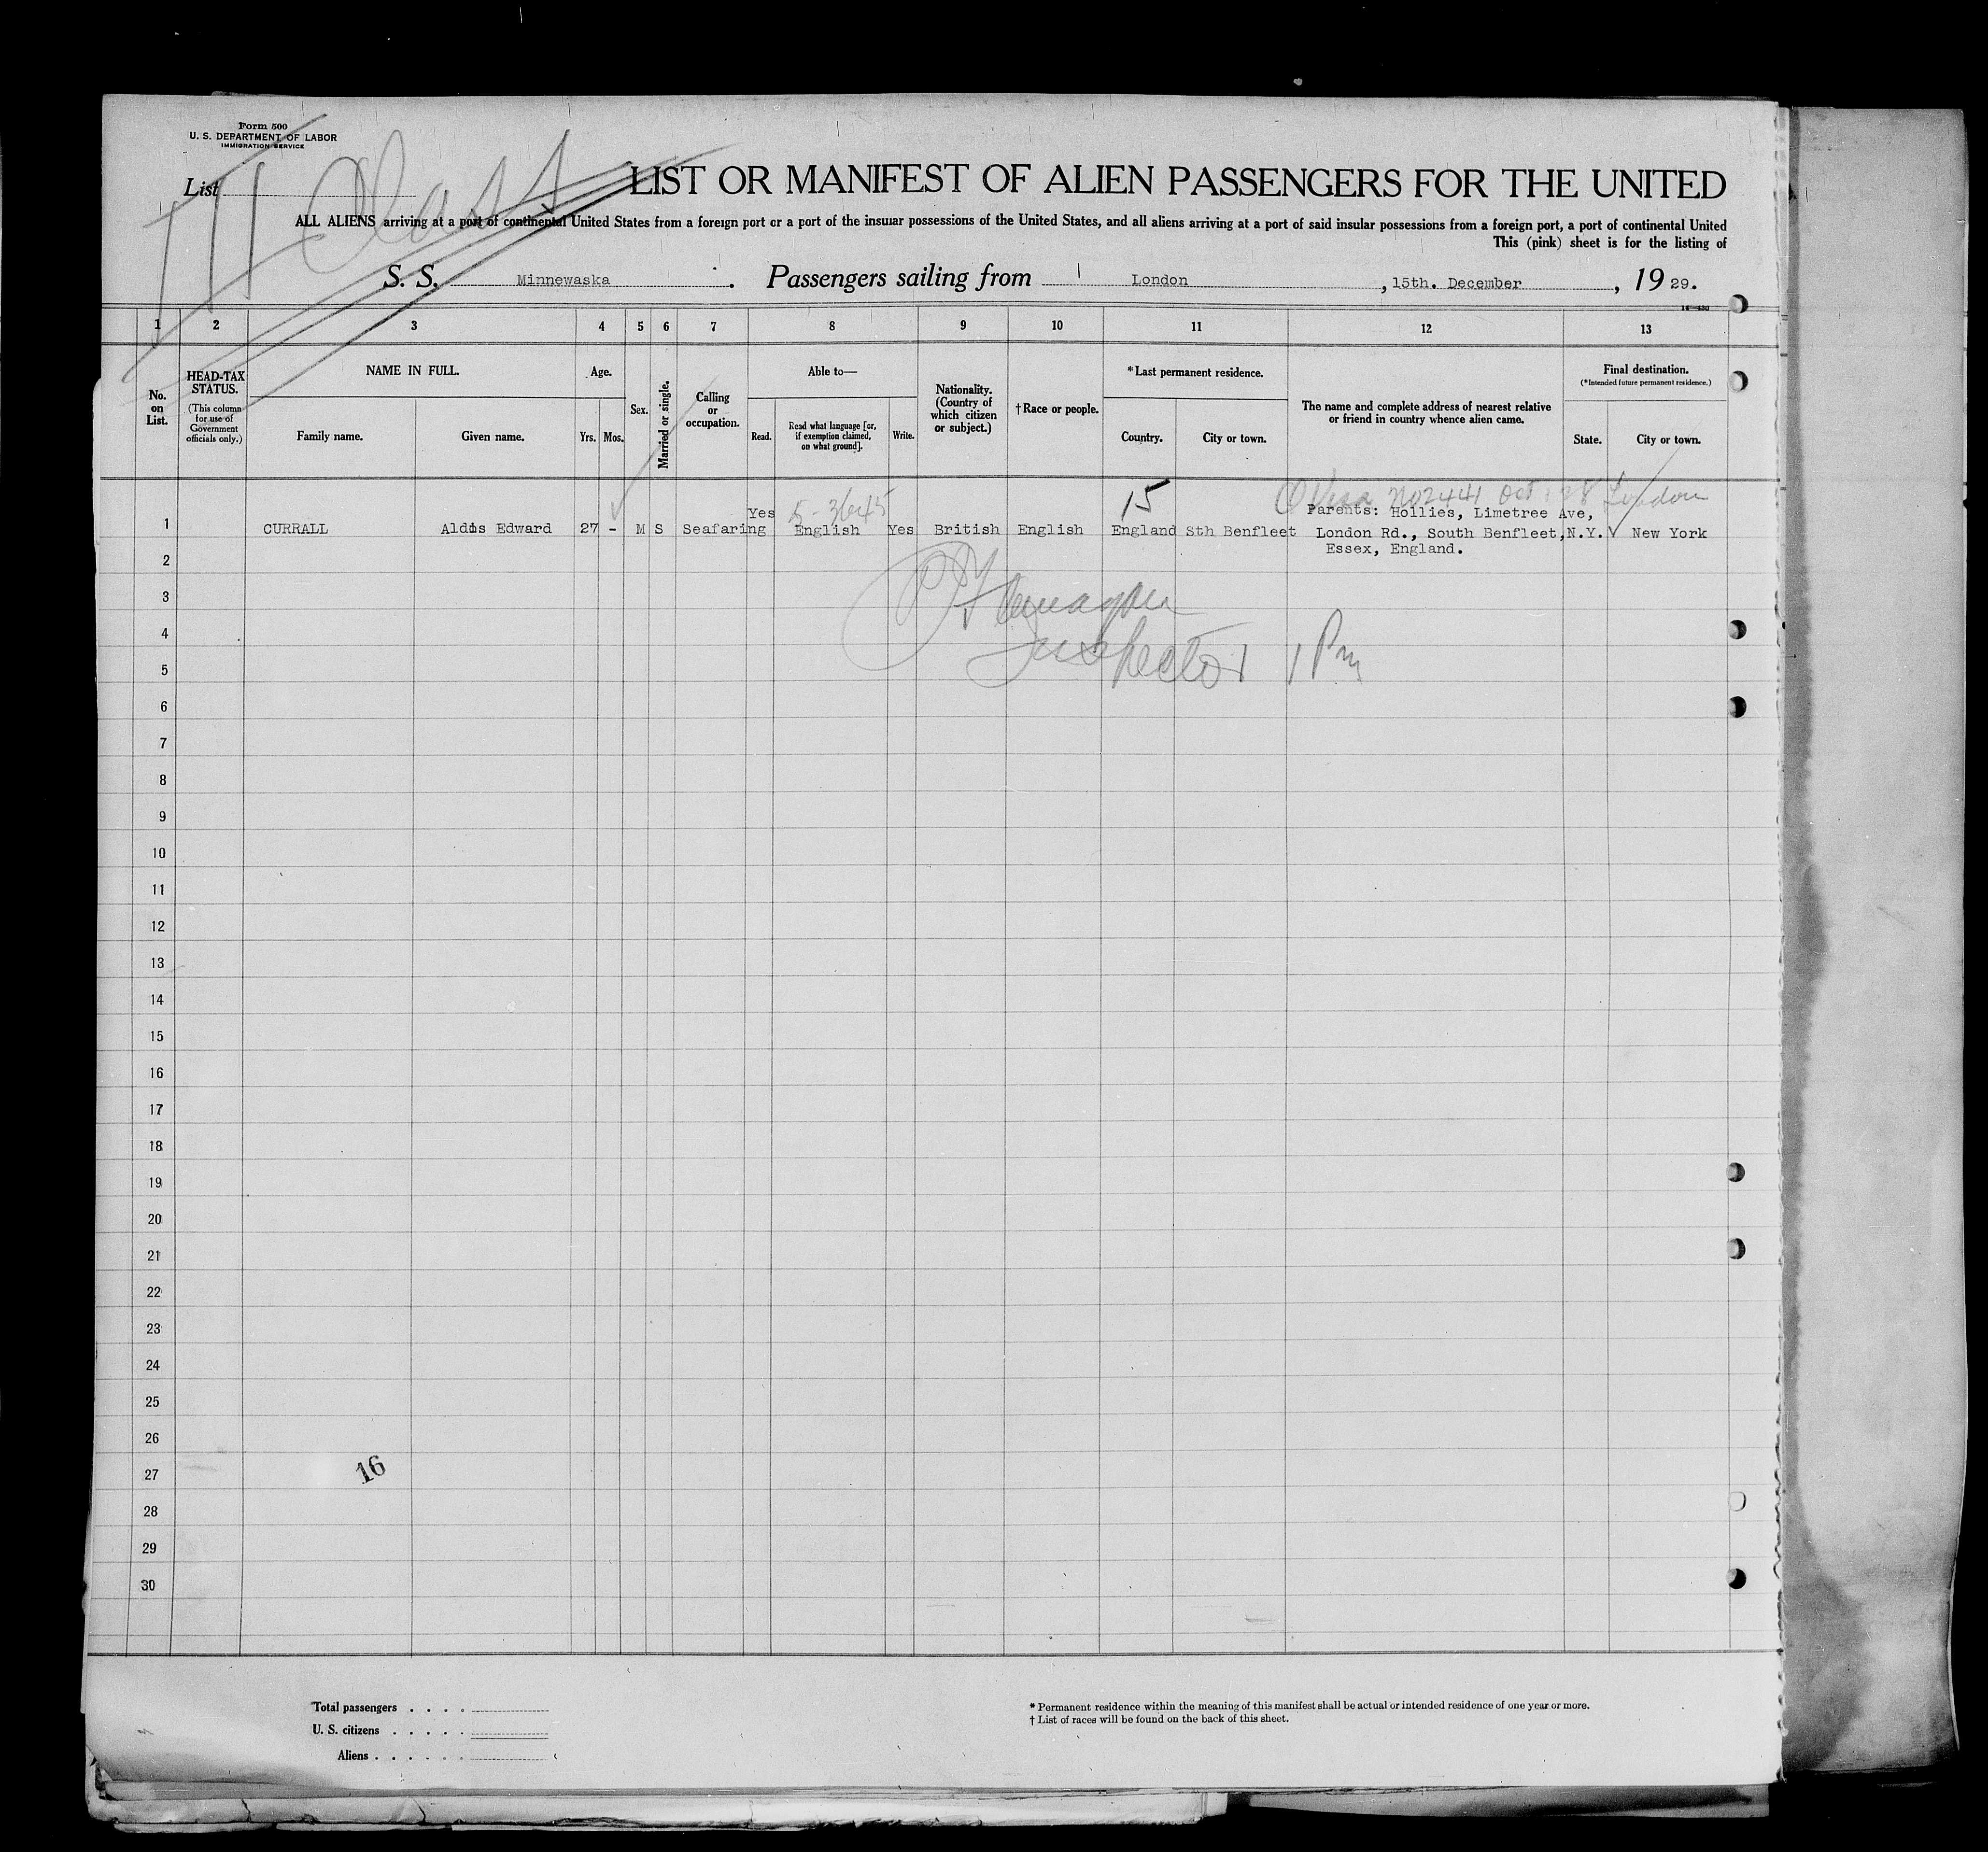 Form 500
U. S. DEPARTMENT OF LABOR
IMMIGRATION SERVICE
III Class
List
LIST OR MANIFEST OF ALIEN PASSENGERS FOR THE UNITED
ALL ALIENS arriving at a port of continental United States from a foreign port or a port of the insular possessions of the United States, and all aliens arriving at a port of said insular possessions from a foreign port, a port of continental United
This (pink) sheet is for the listing of
S. S. Minnewaska. Passengers sailing from London, 15th. December, 19 29.
1 2 3 4 5 6 7 8 9 10 11 12 13
No. on List.
HEAD-TAX STATUS.
(This column for use of Government officials only.)
NAME IN FULL.
Family name. Given name.
Age.
Yrs. Mos.
Sex.
Married or single.
Calling or occupation.
Able to—
Read. Read what language [or, if exemption claimed, on what ground]. Write.
Nationality. (Country of which citizen or subject.)
†Race or people.
*Last permanent residence.
Country. City or town.
The name and complete address of nearest relative or friend in country whence alien came.
Final destination.
(*Intended future permanent residence.)
State. City or town.
15 Visa No 2441 Oct 28 London
Yes 5-3645 Parents: Hollies, Limetree Ave,
1 CURRALL Edward 27 - M S Seafaring English Yes British English England Sth Benfleet London Rd., South Benfleet, N.Y. New York
Essex, England.
2
3
4
Inspector 1 Pm
5
6
7
8
9
10
11
12
13
14
15
16
17
18
19
20
21
22
23
24
25
26
27
16
28
29
30
Total passengers . . . .
U. S. citizens . . . . .
Aliens . . . . . .
* Permanent residence within the meaning of this manifest shall be actual or intended residence of one year or more.
† List of races will be found on the back of this sheet.